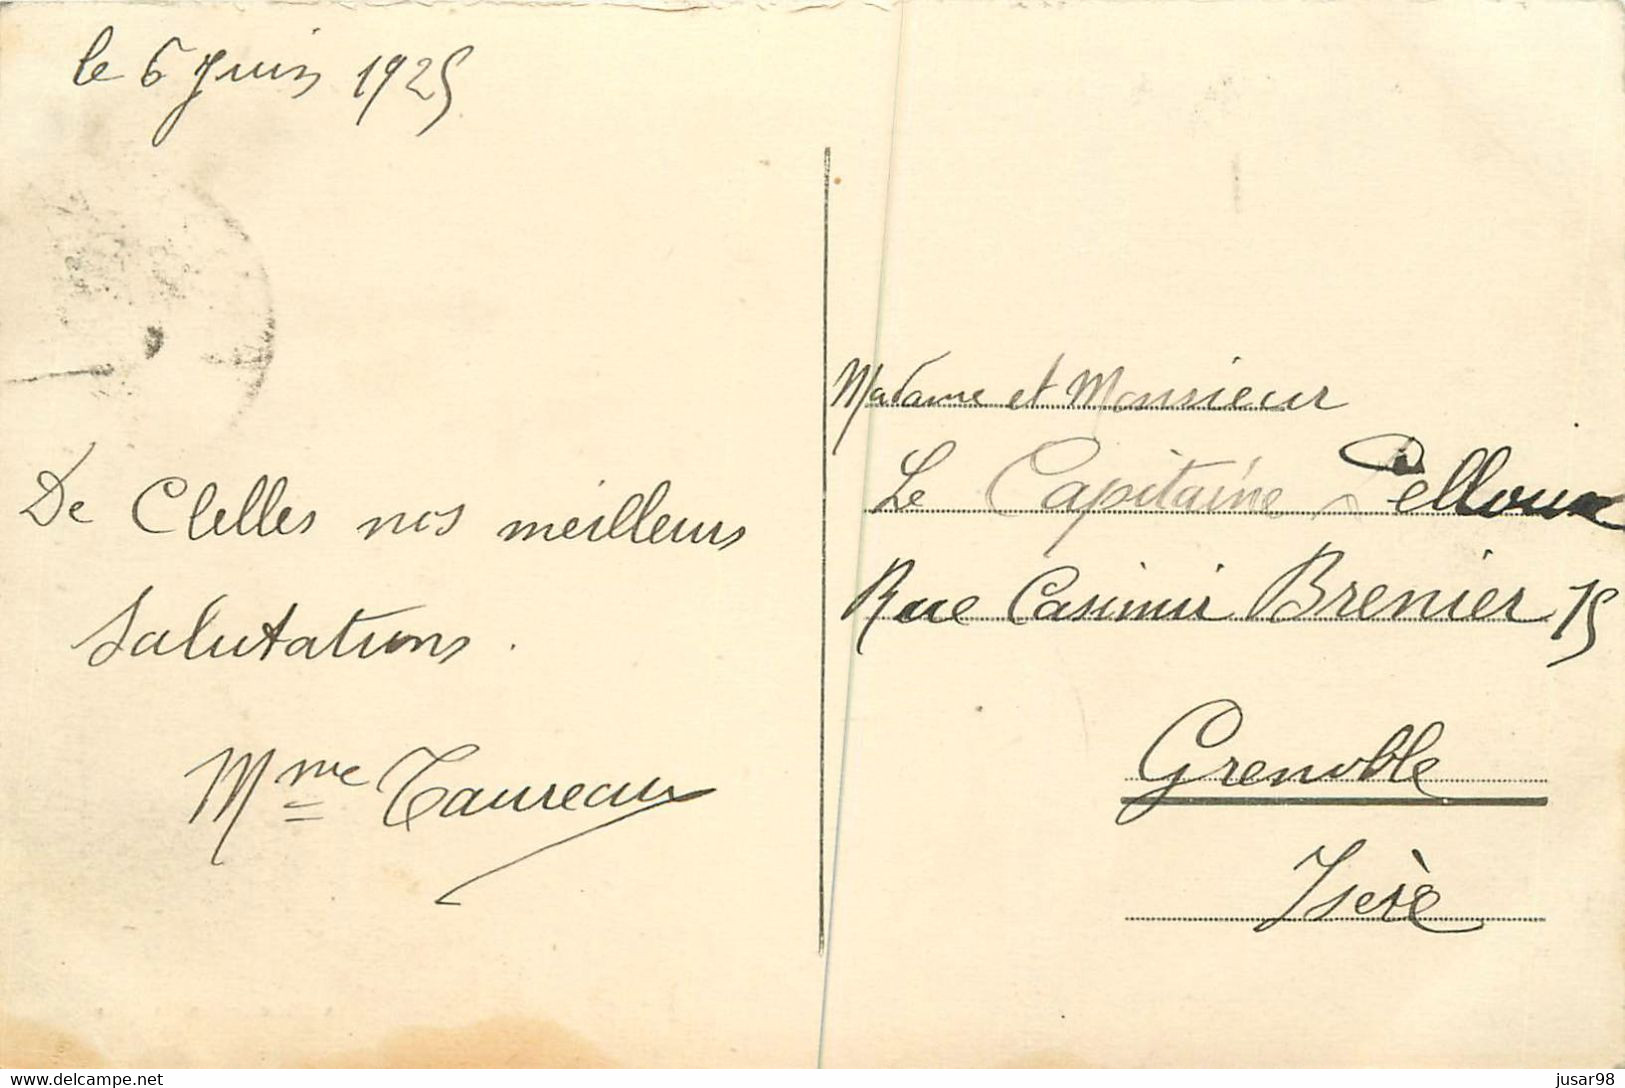 le 6 Juin 1925
De Clelles nos meilleurs
Salutations.
Mme Taureau
Madame et Monsieur
Le Capitaine Pelloux
Rue Casimir Brenier 15
Grenoble
Isère
jusar98